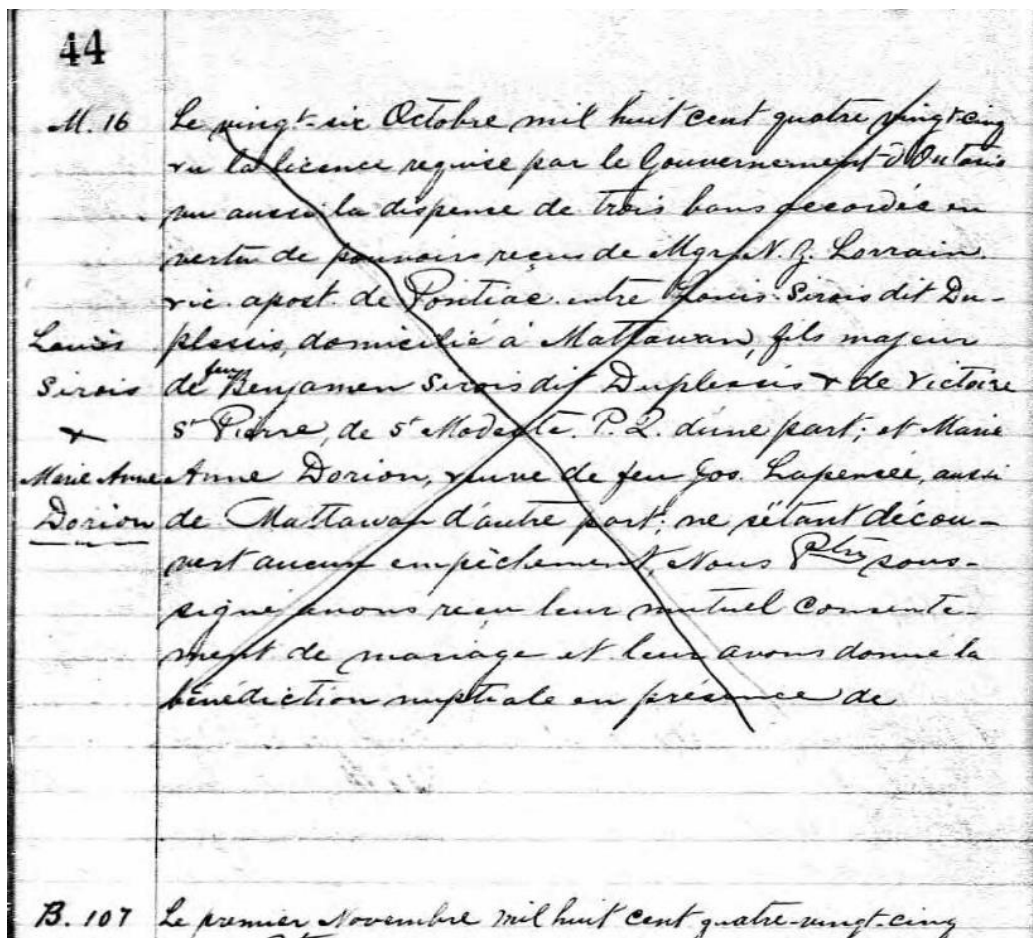 44
M. 16 Le vingt-six Octobre mil huit cent quatre vingt-cinq
vu la licence requise par le Gouvernement d'Ontario
vu aussi la dispense de trois bans accordée en
vertu de pouvoirs reçus de Mgr. N. Z. Lorrain
vic. apost. de Pontiac entre Louis Sirois dit Du-
Louis plessis, domicilié à Mattawan, fils majeur
Sirois de feu Benjamen Sirois dit Duplessis & de Victoire
& St Pierre, de St Modeste. P. Q. d'une part; et Marie
Marie Anne Anne Dorion, veuve de feu Jos. Lapensée, aussi
Dorion de Mattawan d'autre part; ne s'étant décou-
vert aucun empêchement, Nous Ptre sous-
signé avons reçu leur mutuel consente-
ment de mariage et leur avons donné la
bénédiction nuptiale en présence de
B. 107 Le premier Novembre mil huit cent quatre-vingt-cinq